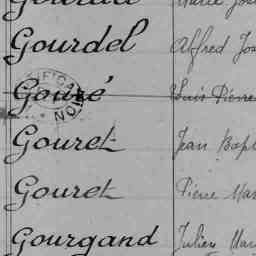 Gourdel Alfred
Gouré Louis Pierre
Gouret Jean
Gouret Pierre
Gourgand Julien